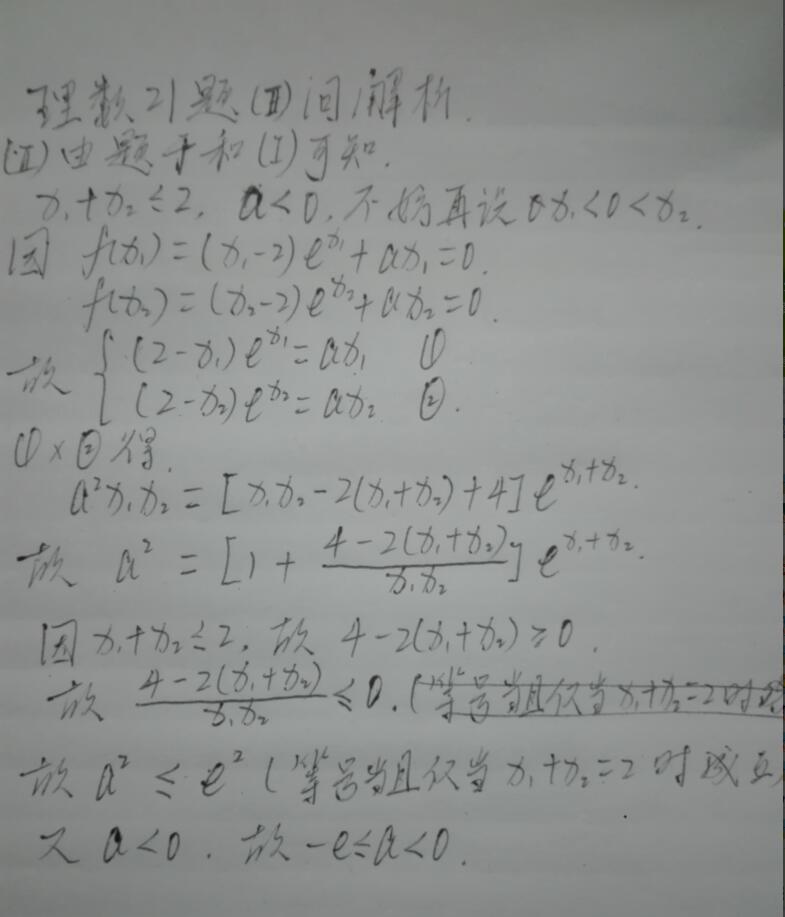 理数21题(Ⅱ)问解析.
(Ⅱ)由题干和(Ⅰ)可知.
x₁+x₂≤2, a<0, 不妨再设 x₁<0<x₂.
因 f(x₁)=(x₁-2)e^{x₁}+ax₁=0.
f(x₂)=(x₂-2)e^{x₂}+ax₂=0.
故 { (2-x₁)e^{x₁}=ax₁ ①
(2-x₂)e^{x₂}=ax₂ ②.
①×②得.
a²x₁x₂=[x₁x₂-2(x₁+x₂)+4]e^{x₁+x₂}.
故 a²=[1+\frac{4-2(x₁+x₂)}{x₁x₂}]e^{x₁+x₂}.
因x₁+x₂≤2, 故 4-2(x₁+x₂)≥0.
故 \frac{4-2(x₁+x₂)}{x₁x₂}≤0. (等号当且仅当x₁+x₂=2时
故 a²≤e² (等号当且仅当 x₁+x₂=2 时成立
又 a<0. 故 -e≤a<0.